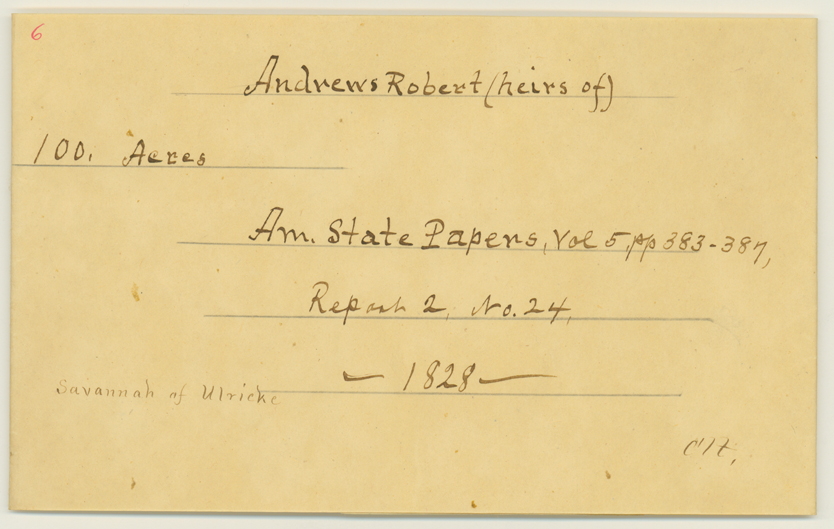 6
Andrews Robert (heirs of)
100. Acres
Am. State Papers, Vol 5, pp 383-387,
Report 2, No. 24,
— 1828 —
Savannah of Ulricke